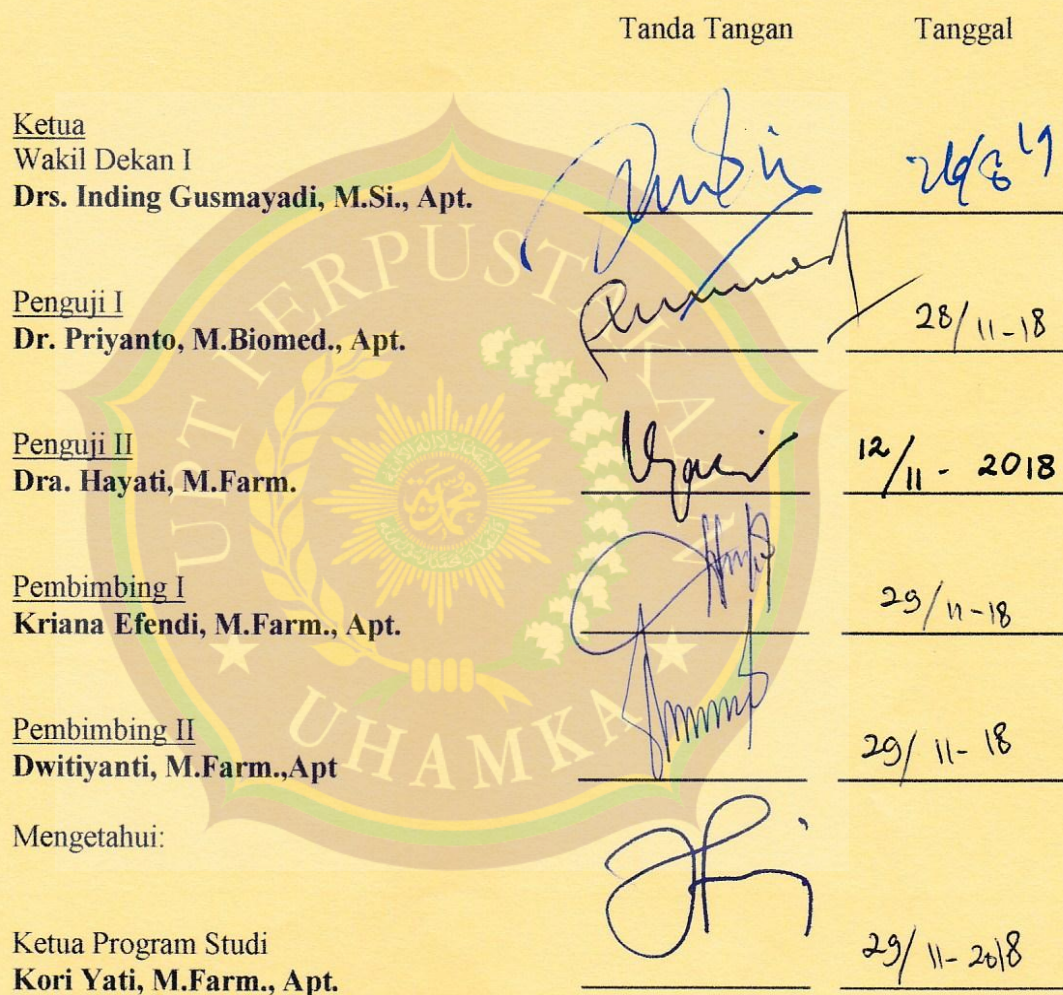 Tanda Tangan Tanggal
Ketua
Wakil Dekan I
Drs. Inding Gusmayadi, M.Si., Apt.
Penguji I
Dr. Priyanto, M.Biomed., Apt. 28/11-18
Penguji II
Dra. Hayati, M.Farm. 12/11 - 2018
Pembimbing I
Kriana Efendi, M.Farm., Apt. 29/11-18
Pembimbing II
Dwitiyanti, M.Farm.,Apt 29/11-18
Mengetahui:
Ketua Program Studi
Kori Yati, M.Farm., Apt. 29/11-2018
UPT PERPUSTAKAAN
UHAMKA